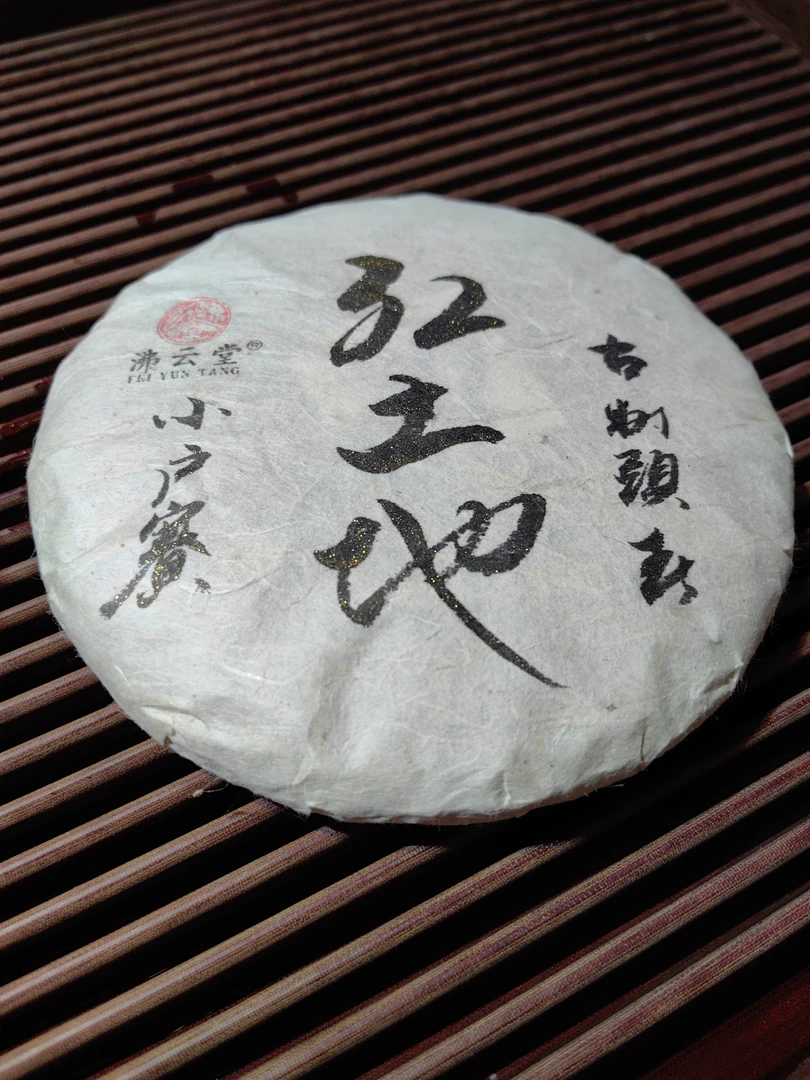 古制頭春
红土地
沸云堂®
FEI YUN TANG
小户賽